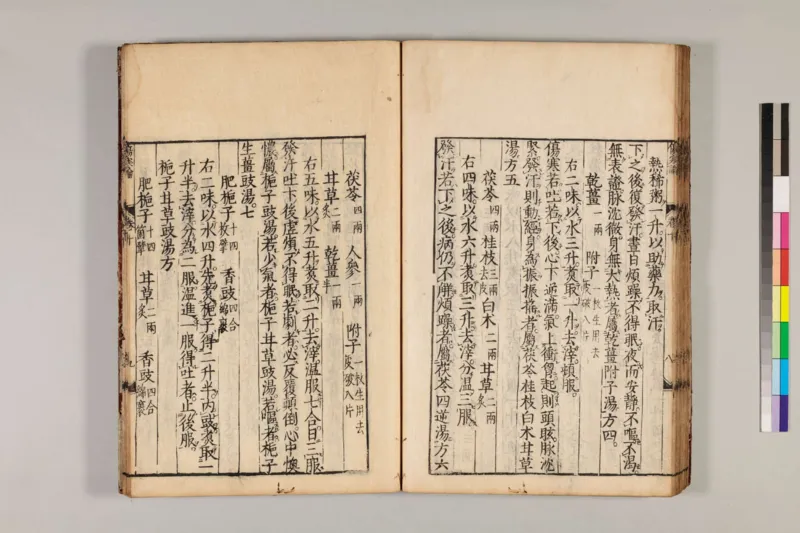 熱稀粥一升以助藥力取汗
下之後復發汗晝日煩躁不得眠夜而安靜不嘔不渴
無表證脉沈微身無大熱者屬乾薑附子湯方四
乾薑一兩 附子一枚生用去皮破八片
右二味以水三升煑取一升去滓頓服
傷寒若吐若下後心下逆滿氣上衝胷起則頭眩脉沈
緊發汗則動經身爲振振搖者屬茯苓桂枝白朮甘草
湯方五
茯苓四兩 桂枝三兩去皮 白朮二兩 甘草二兩炙
右四味以水六升煑取三升去滓分温三服
發汗若下之後病仍不解煩躁者屬茯苓四逆湯方六
茯苓四兩 人參一兩 附子一枚生用去皮破八片
甘草二兩炙 乾薑一兩半
右五味以水五升煑取二升去滓温服七合日三服
發汗吐下後虛煩不得眠若劇者必反覆顛倒心中懊
憹屬梔子豉湯若少氣者梔子甘草豉湯若嘔者梔子
生薑豉湯七
肥梔子十四枚擘 香豉四合綿裹
右二味以水四升先煑梔子得二升半内豉煑取一
升半去滓分為二服温進一服得吐者止後服
梔子甘草豉湯方
肥梔子十四箇擘 甘草二兩炙 香豉四合綿裹